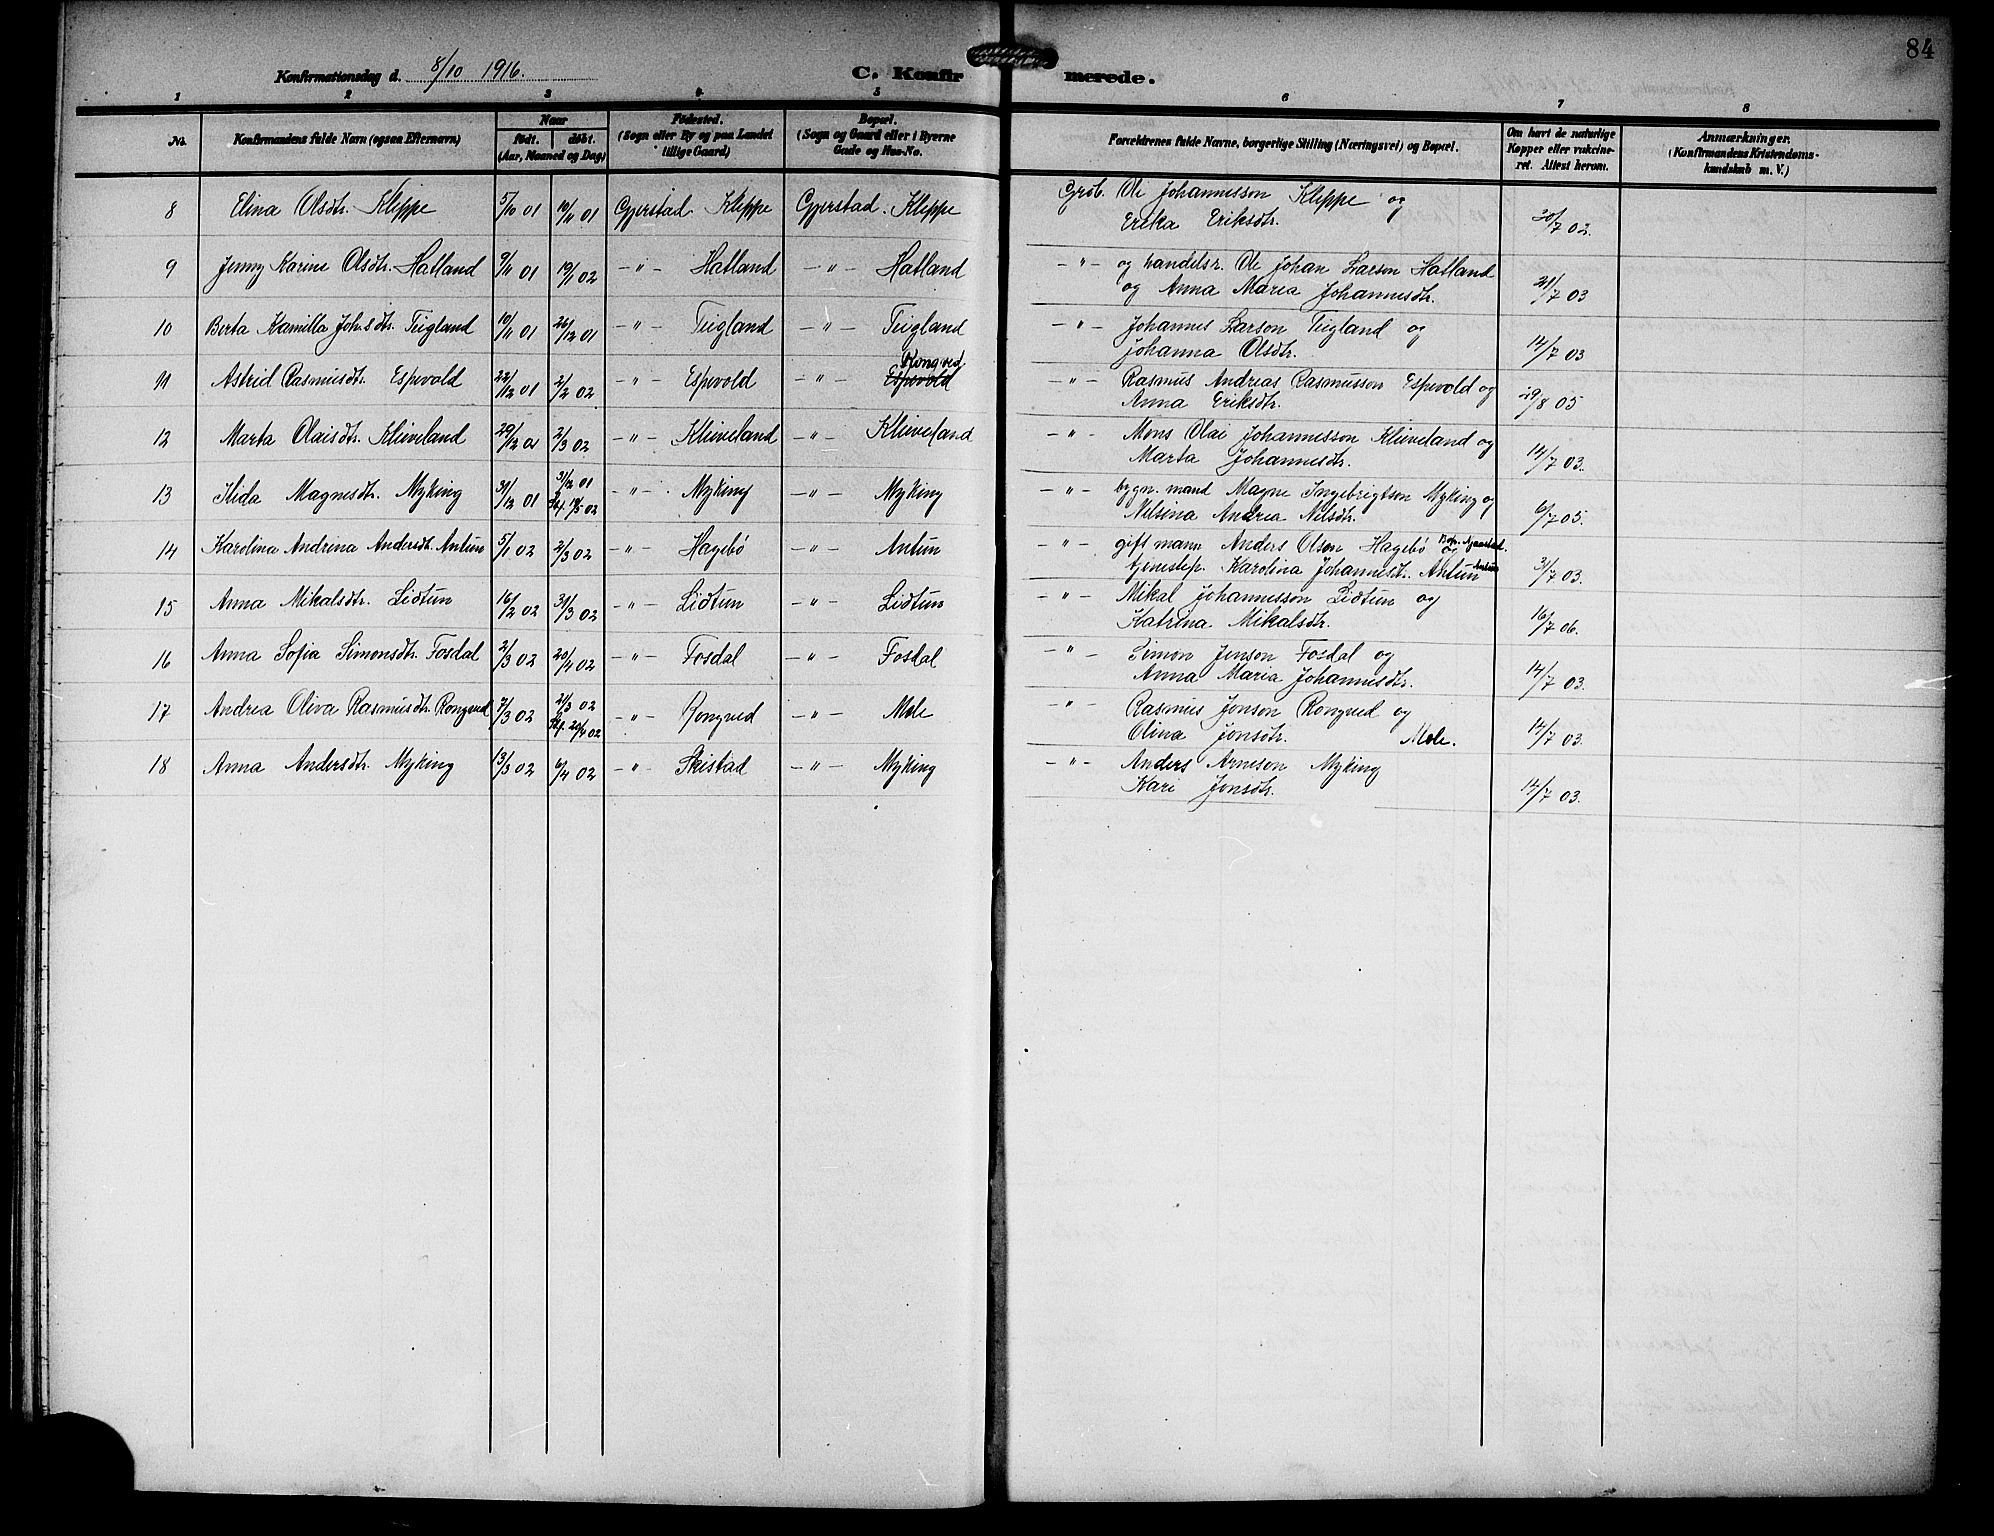 84
Konfirmationsdag d. 8/10 1916.
C. Konfirmerede.
1 2 3 4 5 6 7 8
No. Konfirmandens fulde Navn (ogsaa Efternavn) Naar født. døbt. (Aar, Maaned og Dag) Fødested. (Sogn eller By og paa Landet tillige Gaard) Bopæl. (Sogn og Gaard eller i Byerne Gade og Hus-No. Forældrenes fulde Navne, borgerlige Stilling (Næringsvei) og Bopæl. Om havt de naturlige Kopper eller vakcineret. Attest herom. Anmærkninger. (Konfirmandens Kristendomskundskab m. V.)
8 Elina Olsdtr. Kleppe 5/10 01 10/11 01 Gjerstad Kleppe Gjerstad. Kleppe Grdb. Ole Johannesson Kleppe og
Erika Eriksdtr. 30/7 02.
9 Jenny Karine Olsdtr. Hatland 9/11 01 19/1 02 -"- Hatland -"- Hatland -"- og handelsr. Ole Johan Larson Hatland
og Anna Maria Johannesdtr. 21/7 03
10 Berta Kamilla Joh.sdtr. Teigland 10/11 01 26/12 01 -"- Teigland -"- Teigland -"- Johannes Larson Teigland og
Johanna Olsdtr. 14/7 03
11 Astrid Rasmusdtr. Espevold 22/12 01 2/2 02 -"- Espevold -"- Espevold Rongved -"- Rasmus Andreas Rasmusson Espevold og
Anna Eriksdtr. 29/8 05
12 Marta Olaisdtr. Kleiveland 29/12 01 2/3 02 -"- Kleiveland -"- Kleiveland -"- Mons Olai Johannesson Kleiveland og
Marta Johannesdtr. 14/7 03.
13 Ilida Magnesdtr. Myking 31/12 01 31/12 01 -"- Myking -"- Myking -"- bygn. mand Magne Ingebrigtson Myking og
19/5 02 Nilsina Andrea Nilsdtr. 6/7 05.
14 Karolina Andrina Andersdtr. Antun 5/1 02 2/3 02 -"- Hagebø -"- Antun -"- gift mann Anders Olson Hagebø og
tjenestep. Karolina Johannesdtr. Antun 3/7 03.
15 Anna Mikalsdtr. Lidtun 16/2 02 31/3 02 -"- Lidtun -"- Lidtun -"- Mikal Johannesson Lidtun og
Katrina Mikalsdtr. 16/7 06.
16 Anna Sofia Simonsdtr. Fosdal 2/3 02 20/4 02 -"- Fosdal -"- Fosdal -"- Simon Jenson Fosdal og
Anna Maria Johannesdtr. 14/7 03.
17 Andrea Oliva Rasmusdtr. Rongved 7/3 02 21/3 02 -"- Rongved -"- Mele -"- Rasmus Jonson Rongved og
20/4 02 Olina Jonsdtr. Mele. 14/7 03.
18 Anna Andersdtr. Myking 13/3 02 6/4 02 -"- Skistad -"- Myking -"- Anders Arneson Myking
Kari Jonsdtr. 14/7 03.